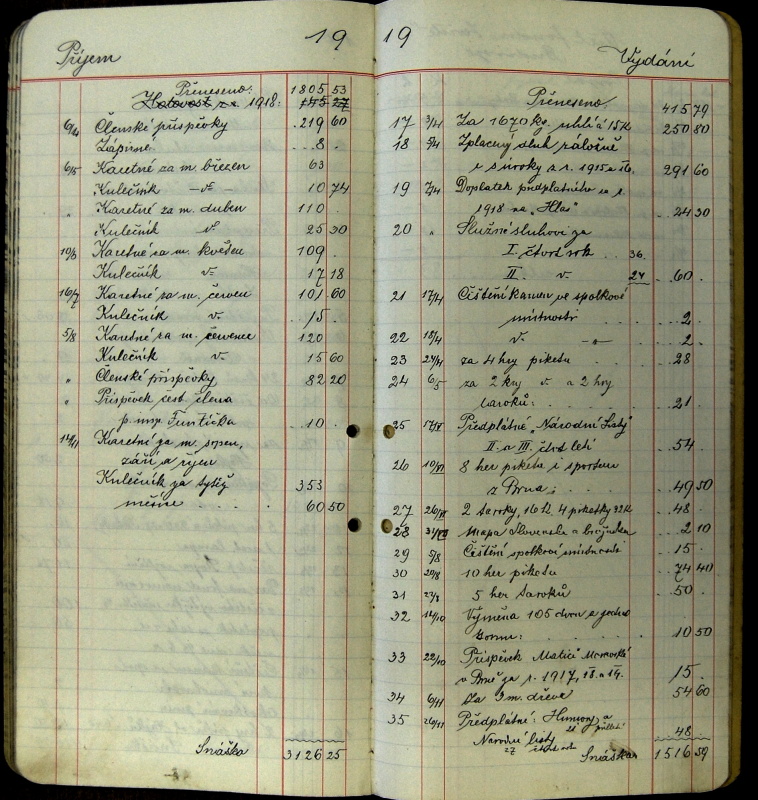 19
Příjem
Přeneseno: 1805 53
Hotovost z r. 1918: 745 27
6/4 Členské příspěvky . 219 60
Zápisné . . . 8 .
6/5 Karetné za m. březen 63
Kulečník — " — 10 74
" Karetné za m. duben 110 .
Kulečník " 25 30
10/6 Karetné za m. květen 109 .
Kulečník " 17 18
16/7 Karetné za m. červen 101 60
Kulečník " 15 .
5/8 Karetné za m. červenec 120
Kulečník " 15 60
" Členské příspěvky 82 20
" Příspěvek čest. člena
p. insp. Funtíčka . 10 .
14/11 Karetní za m. srpen,
září a říjen
Kulečník za tytéž 353
měsíce . . . . 60 50
Snáška 3126 25
19
Vydání
Přeneseno. 415 79
17 3/4 Za 1670 kg. uhlí á 15K 250 80
18 Zplacený dluh záložně
i s úroky z r. 1915 a 16. 291 60
19 7/4 Doplatek předplatného z r.
1918 na „Hlas" . . 24 30
20 " Služné sluhovi za
I. čtvrt rok . . 36.
II. " 24 . 60 .
21 17/4 Čištění kamen ve spolkové
místnosti . . . . 2 .
22 18/4 " — " — . . 2 .
23 24/4 za 4 hry piketu . . 28
24 6/5 za 2 hry " a 2 hry
taroků: . . . . 21 .
25 Předplatné „Národní Listy"
II. a III. čtvrt letí . 54 .
26 10/VI 8 her piketu i sportem
z Brna: . . . . 49 50
27 26/VI 2 taroky, 16 K. 4 piketky 32K . 48 .
28 Mapa Slovenska 2 10
29 5/8 Čištění spolkové místnosti . 15 .
30 20/8 10 her piketu . . 74 40
31 5 her taroků . . 50 .
32 14/10 Výměna 105
10 50
33 22/10 Příspěvek Matici Moravské
v Brně za r. 1917, 18. a 19. 15 .
34 6/11 Za 3 m. dřeva 54 60
35 26/11 Předplatné: Humory a
Národní listy 48
Snáška 1516 59